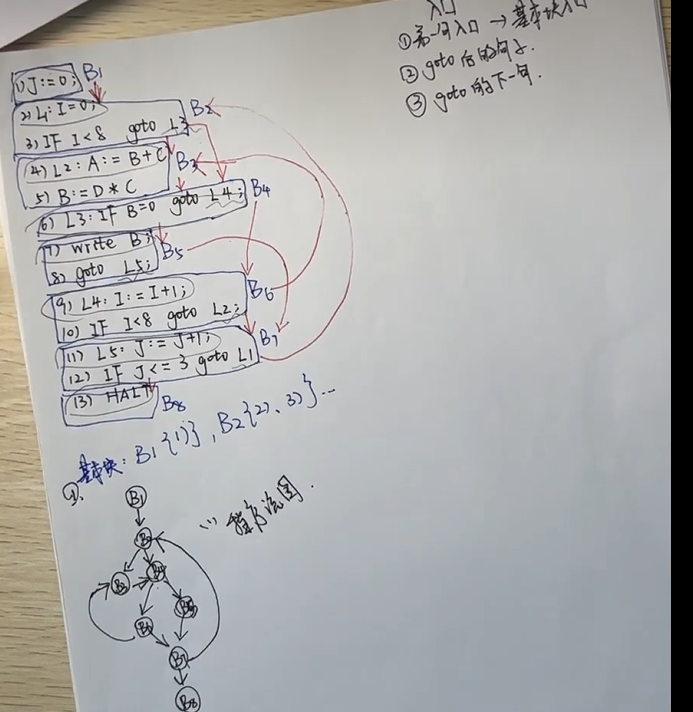 入口
① 第一句入口 → 基本块入口
② goto 后的句子.
③ goto 的下一句.
1) J:=0; B1
2) L1: I=0; B2
3) IF I<8 goto L3
4) L2: A:=B+C B3
5) B:=D*C
6) L3: IF B=0 goto L4; B4
7) write B; B5
8) goto L5;
9) L4: I:=I+1; B6
10) IF I<8 goto L2;
11) L5: J:=J+1; B7
12) IF J<=3 goto L1
13) HALT B8
基本块: B1{1)}, B2{2)、3)}...
②.
B1
(1) 程序流图.
B2
B3 B4
B6 B5
B7
B8